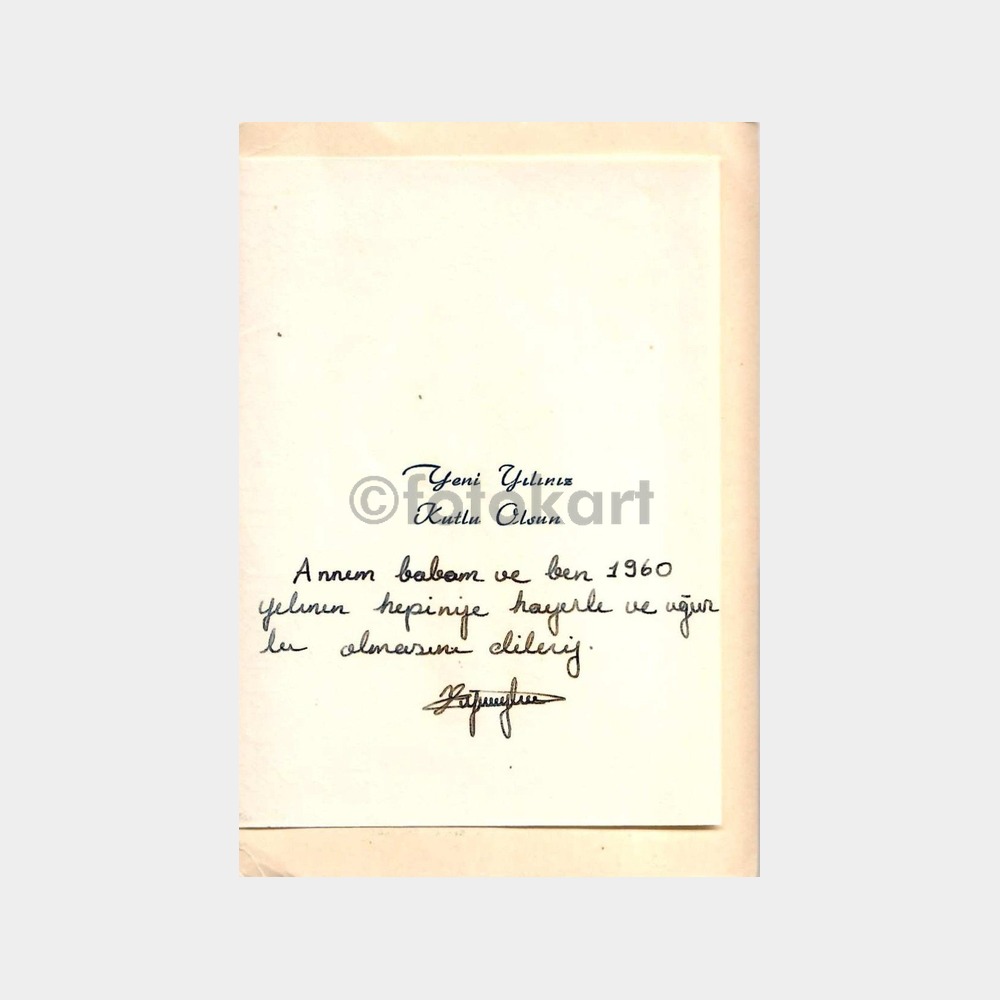 Yeni Yılınız
©fotokart
Kutlu Olsun
Annem babam ve ben 1960
yılının hepinize hayırlı ve uğur
lu olmasını dileriz.